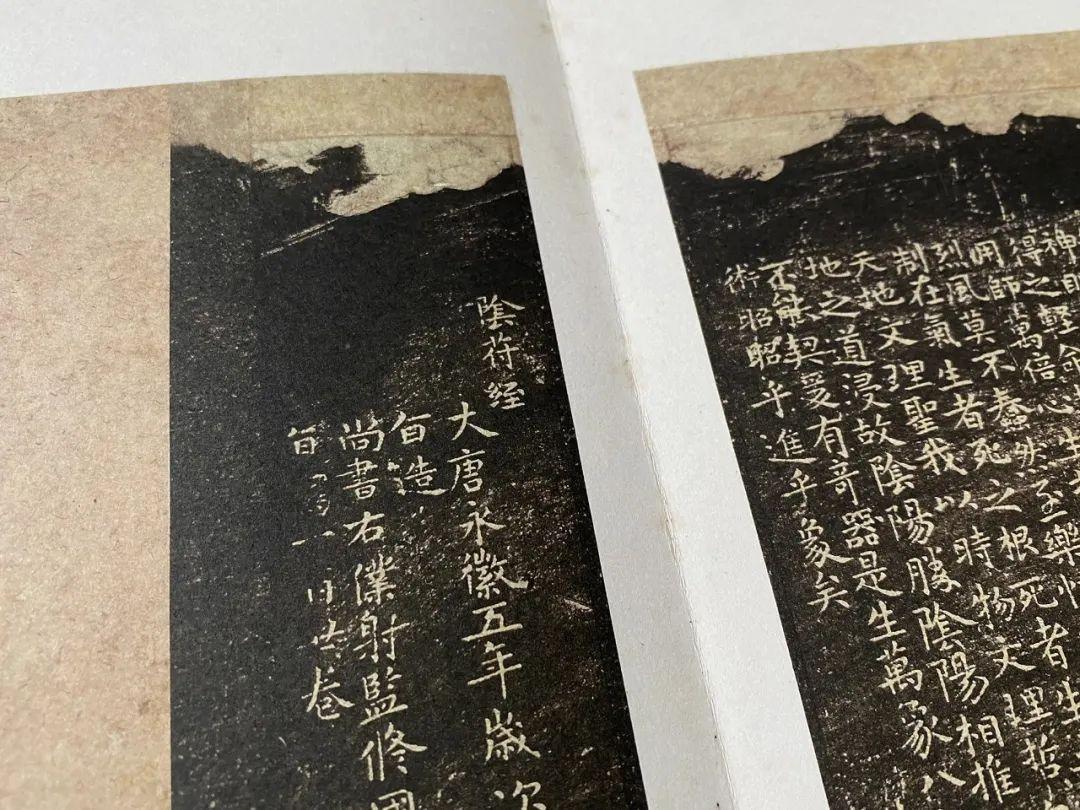 得之輕命
用師萬倍心生
烈風莫不蠢然至樂性
制在氣生者死之根死者生
天地文理聖我以時物文理哲
地之道浸故陰陽勝陰陽相推
不能契爰有奇器是生萬象八
術昭昭乎進乎象矣
陰符經
大唐永徽五年歲次
旨造
尚書右僕射監修國
卷